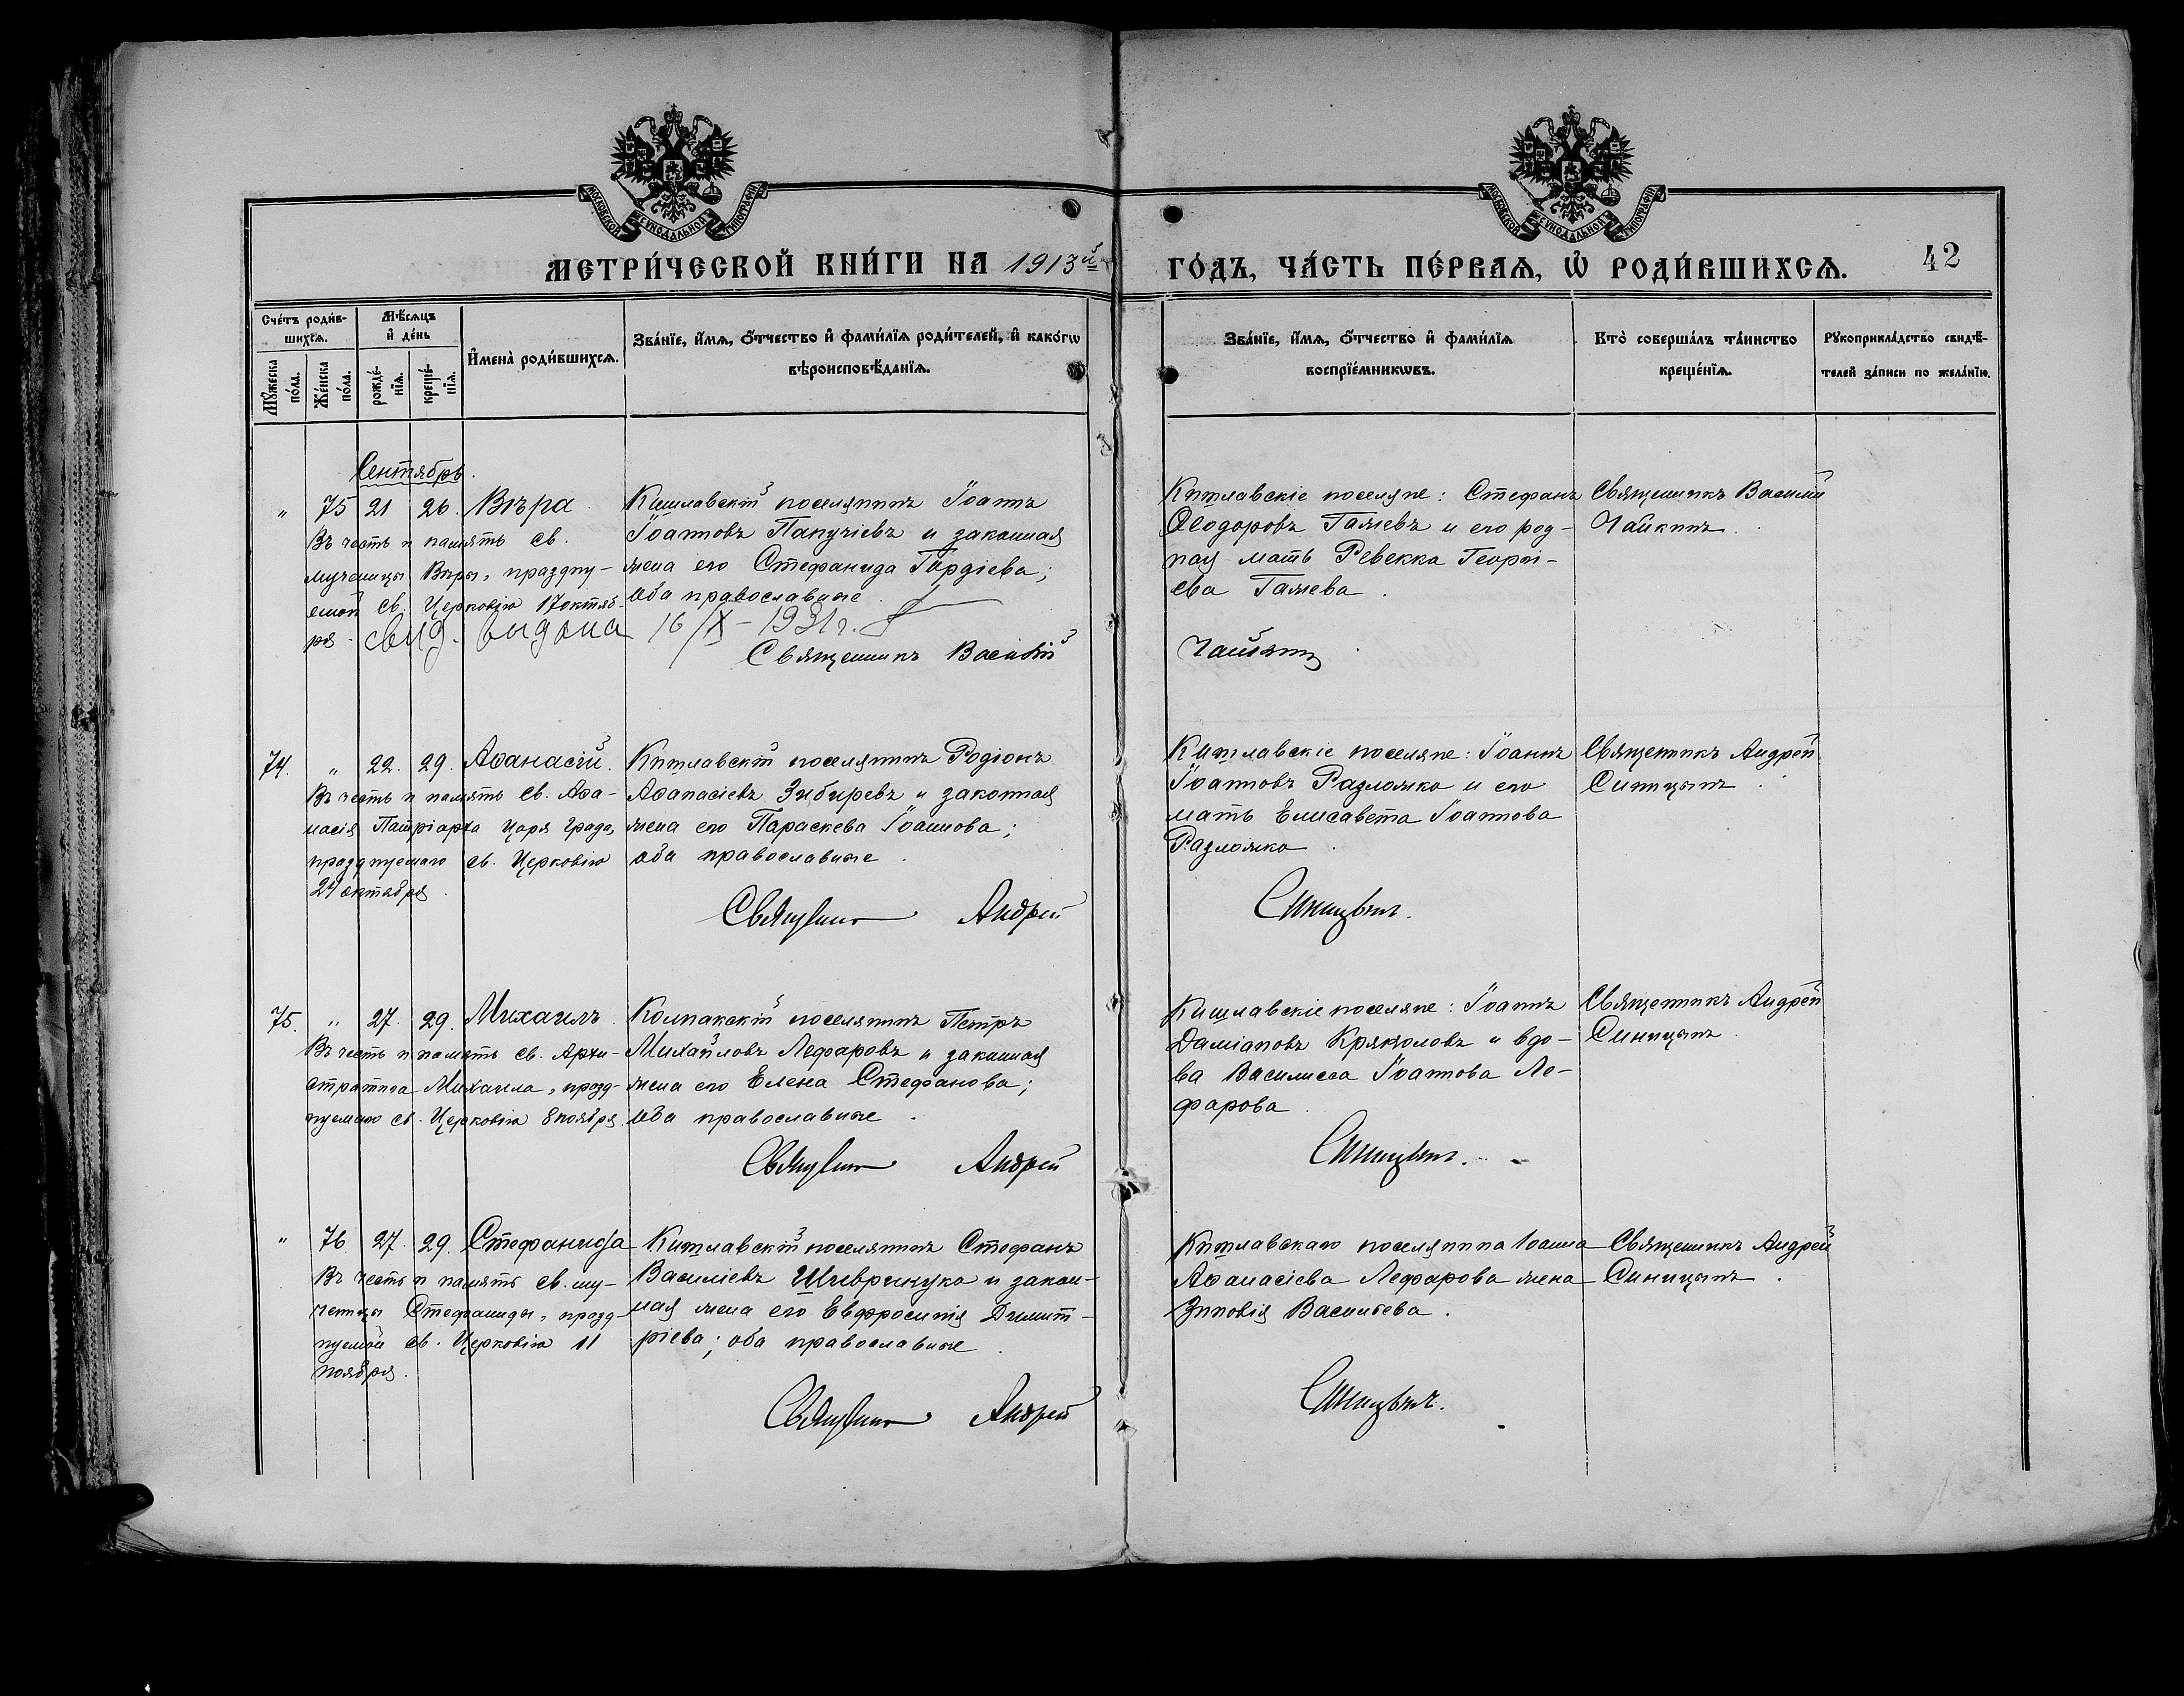 МОСКОВСКОЙ СУНОДАЛЬНОЙ ТИПОГРАФІИ
МОСКОВСКОЙ СУНОДАЛЬНОЙ ТИПОГРАФІИ
МЕТРИ́ЧЕСКОЙ КНИ́ГИ НА 1913й
ГО́ДЪ, ЧА́СТЬ ПЕ́РВАѦ, Ѡ҆ РОДИ́ВШИХСѦ. 42
Сче́тъ роди́в-
шихсѧ.
Мꙋ́жеска по́ла.
Же́нска по́ла.
Мѣ́сѧцъ
и҆ де́нь
рожде́-
нїѧ.
креще́-
нїѧ.
И҆мена̀ роди́вшихсѧ.
Зва́нїе, и҆́мѧ, ѻ҆́тчество и҆ фами́лїѧ роди́телей, и҆ како́гѡ
вѣроисповѣ́данїѧ.
Зва́нїе, и҆́мѧ, ѻ҆́тчество и҆ фами́лїѧ
воспрїе́мникѡвъ.
Кто̀ соверша́лъ та́инство
креще́нїѧ.
Рꙋкоприкла́дство свидѣ́-
телей за́писи по жела́нїю.
Сентябрь.
" 75 21 26. Вѣра.
Въ честь и память св.
мученицы Вѣры, праздну-
емой св. Церковію 17 октяб-
ря.
Кишлавскій поселянинъ Іоаннъ
Іоанновъ Папучіевъ и законная
жена его Стефанида Гордіева;
оба православные.
свид. выдана 16/X – 1931 г.
Священникъ Василій
Кишлавскіе поселяне: Стефанъ
Ѳеодоровъ Галіевъ и его род-
ная мать Ревекка Георгі-
ева Галіева.
Чайкинъ.
Священникъ Василій
Чайкинъ.
74. " 22. 29. Аѳанасій.
Въ честь и память св. Аѳа-
насія Патріарха Царя Града,
празднуемаго св. Церковію
24 октября.
Кишлавскій поселянинъ Родіонъ
Аѳанасіевъ Зибиревъ и законная
жена его Параскева Іоаннова;
оба православные.
Священникъ Андрей
Кишлавскіе поселяне: Іоаннъ
Іоанновъ Разложко и его
мать Елисавета Іоаннова
Разложко.
Синицынъ.
Священникъ Андрей
Синицынъ.
75. " 27. 29. Михаилъ.
Въ честь и память св. Архи-
стратига Михаила, празд-
нуемаго св. Церковію 8 ноября.
Колпакскій поселянинъ Петръ
Михайловъ Лефаровъ и законная
жена его Елена Стефанова;
оба православные.
Священникъ Андрей
Кишлавскіе поселяне: Іоаннъ
Даміановъ Кряколовъ и вдо-
ва Василисса Іоаннова Ле-
фарова.
Синицынъ.
Священникъ Андрей
Синицынъ.
" 76 27. 29. Стефанида
Въ честь и память св. му-
ченицы Стефаниды, празд-
нуемой св. Церковію 11
ноября.
Кишлавскій поселянинъ Стефанъ
Василіевъ Шивринуко и закон-
ная жена его Евфросинія Димит-
ріева; оба православные.
Священникъ Андрей
Кишлавскаго поселянина Іоанна
Аѳанасіева Лефарова жена
Зиновія Васильева.
Синицынъ.
Священникъ Андрей
Синицынъ.